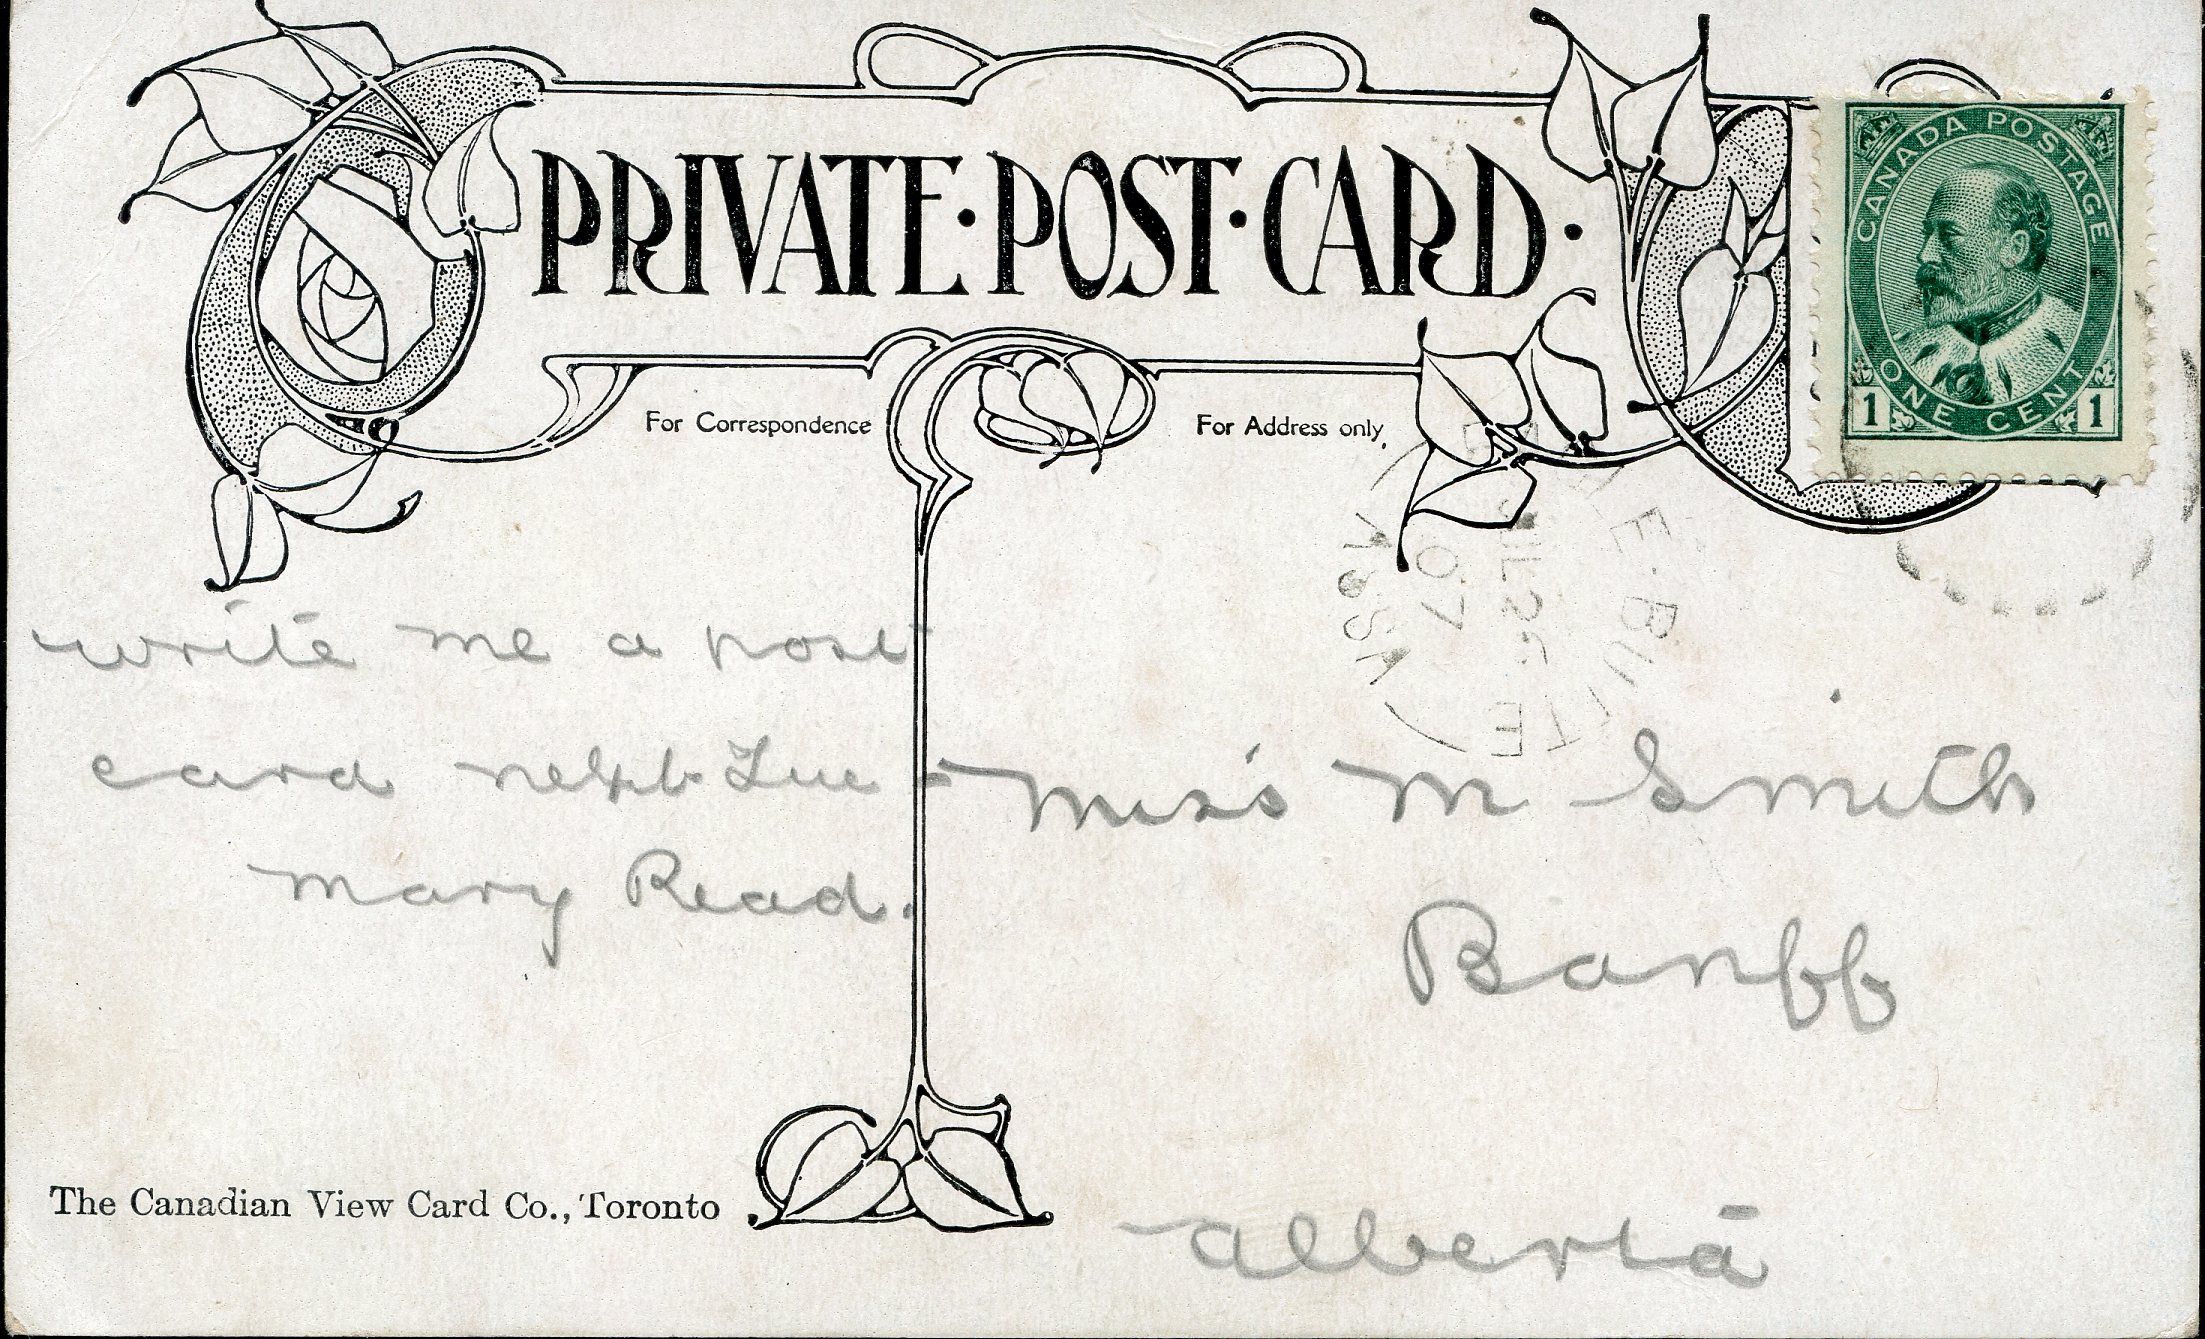 PRIVATE·POST·CARD·
CANADA POSTAGE
ONE CENT
1 1
For Correspondence
For Address only.
07
write me a post
card next Tue
Mary Read.
Miss M Smith
Banff
Alberta
The Canadian View Card Co., Toronto